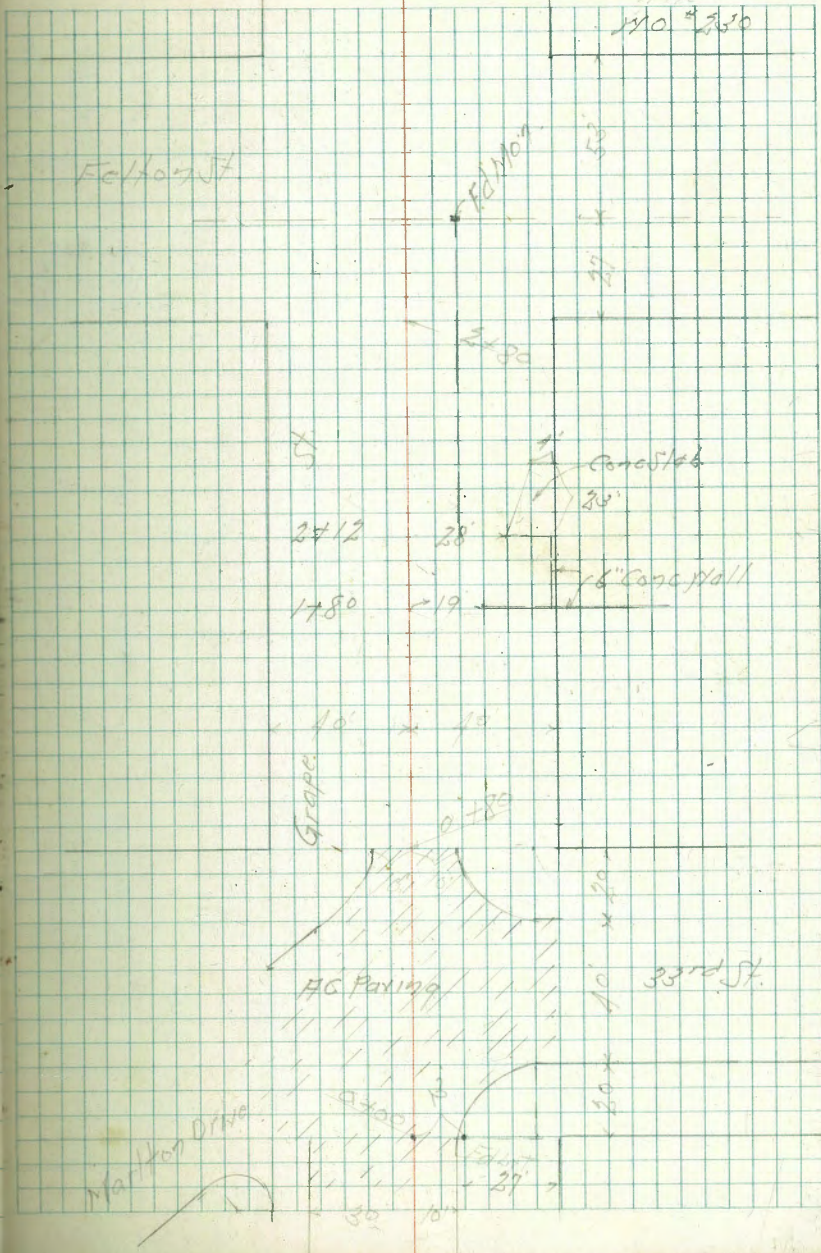 W.O. # 230
53'
Felton St.
Fd Mon.
27
2+80
St.
4'
Conc Slab
23'
2+12
28'
6" Conc Wall
1+80
19
40'
40'
Grape
0+80
10'
10'
20'
AC Paving
40'
33rd St.
20
0+00
Marlton Drive
27'
30
10'